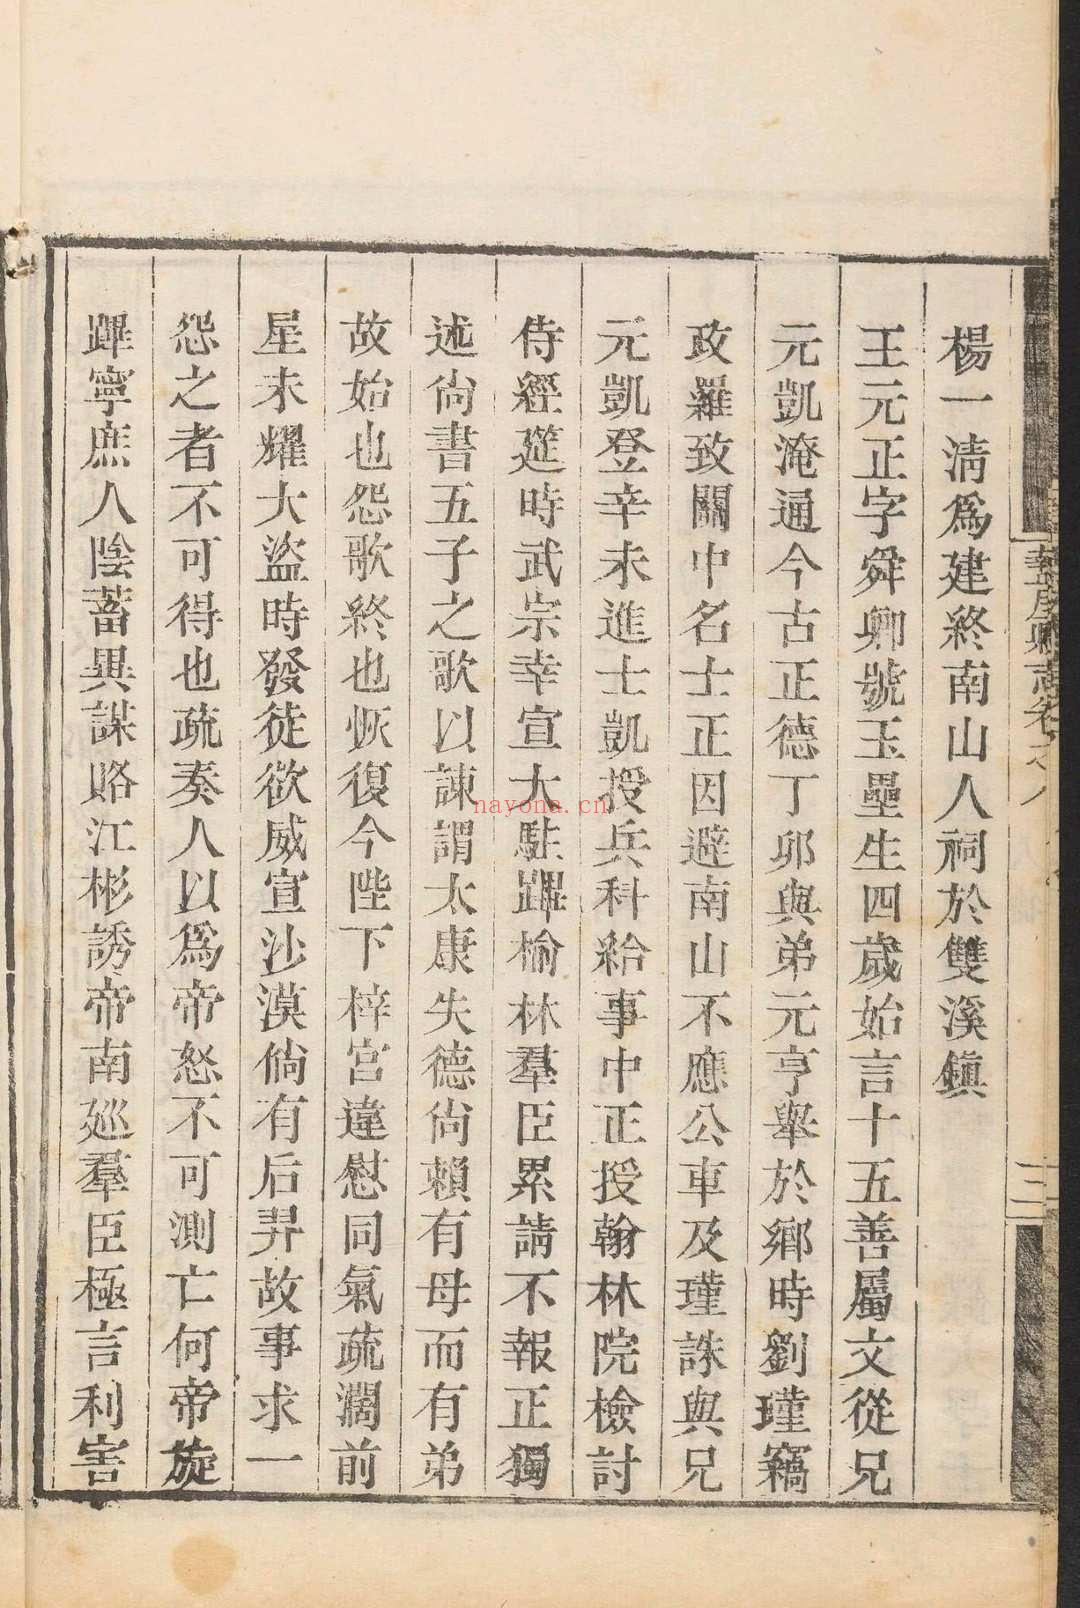 楊一清爲建終南山人祠於雙溪鎮
王元正字舜卿號玉壘生四歲始言十五善屬文從兄
元凱淹通今古正德丁卯與弟元亨舉於鄉時劉瑾竊
政羅致關中名士正因避南山不應公車及瑾誅與兄
元凱登辛未進士凱授兵科給事中正授翰林院檢討
侍經筵時武宗幸宣大駐蹕榆林羣臣累請不報正獨
述尙書五子之歌以諫謂太康失德尙賴有母而有弟
故始也怨歌終也恢復今陛下梓宮違慰同氣疏濶前
星未耀大盜時發徒欲威宣沙漠倘有后羿故事求一
怨之者不可得也疏奏人以爲帝怒不可測亡何帝旋
蹕寧庶人陰蓄異謀賂江彬誘帝南廵羣臣極言利害
盩厔縣志卷之八
三
nayona.cn